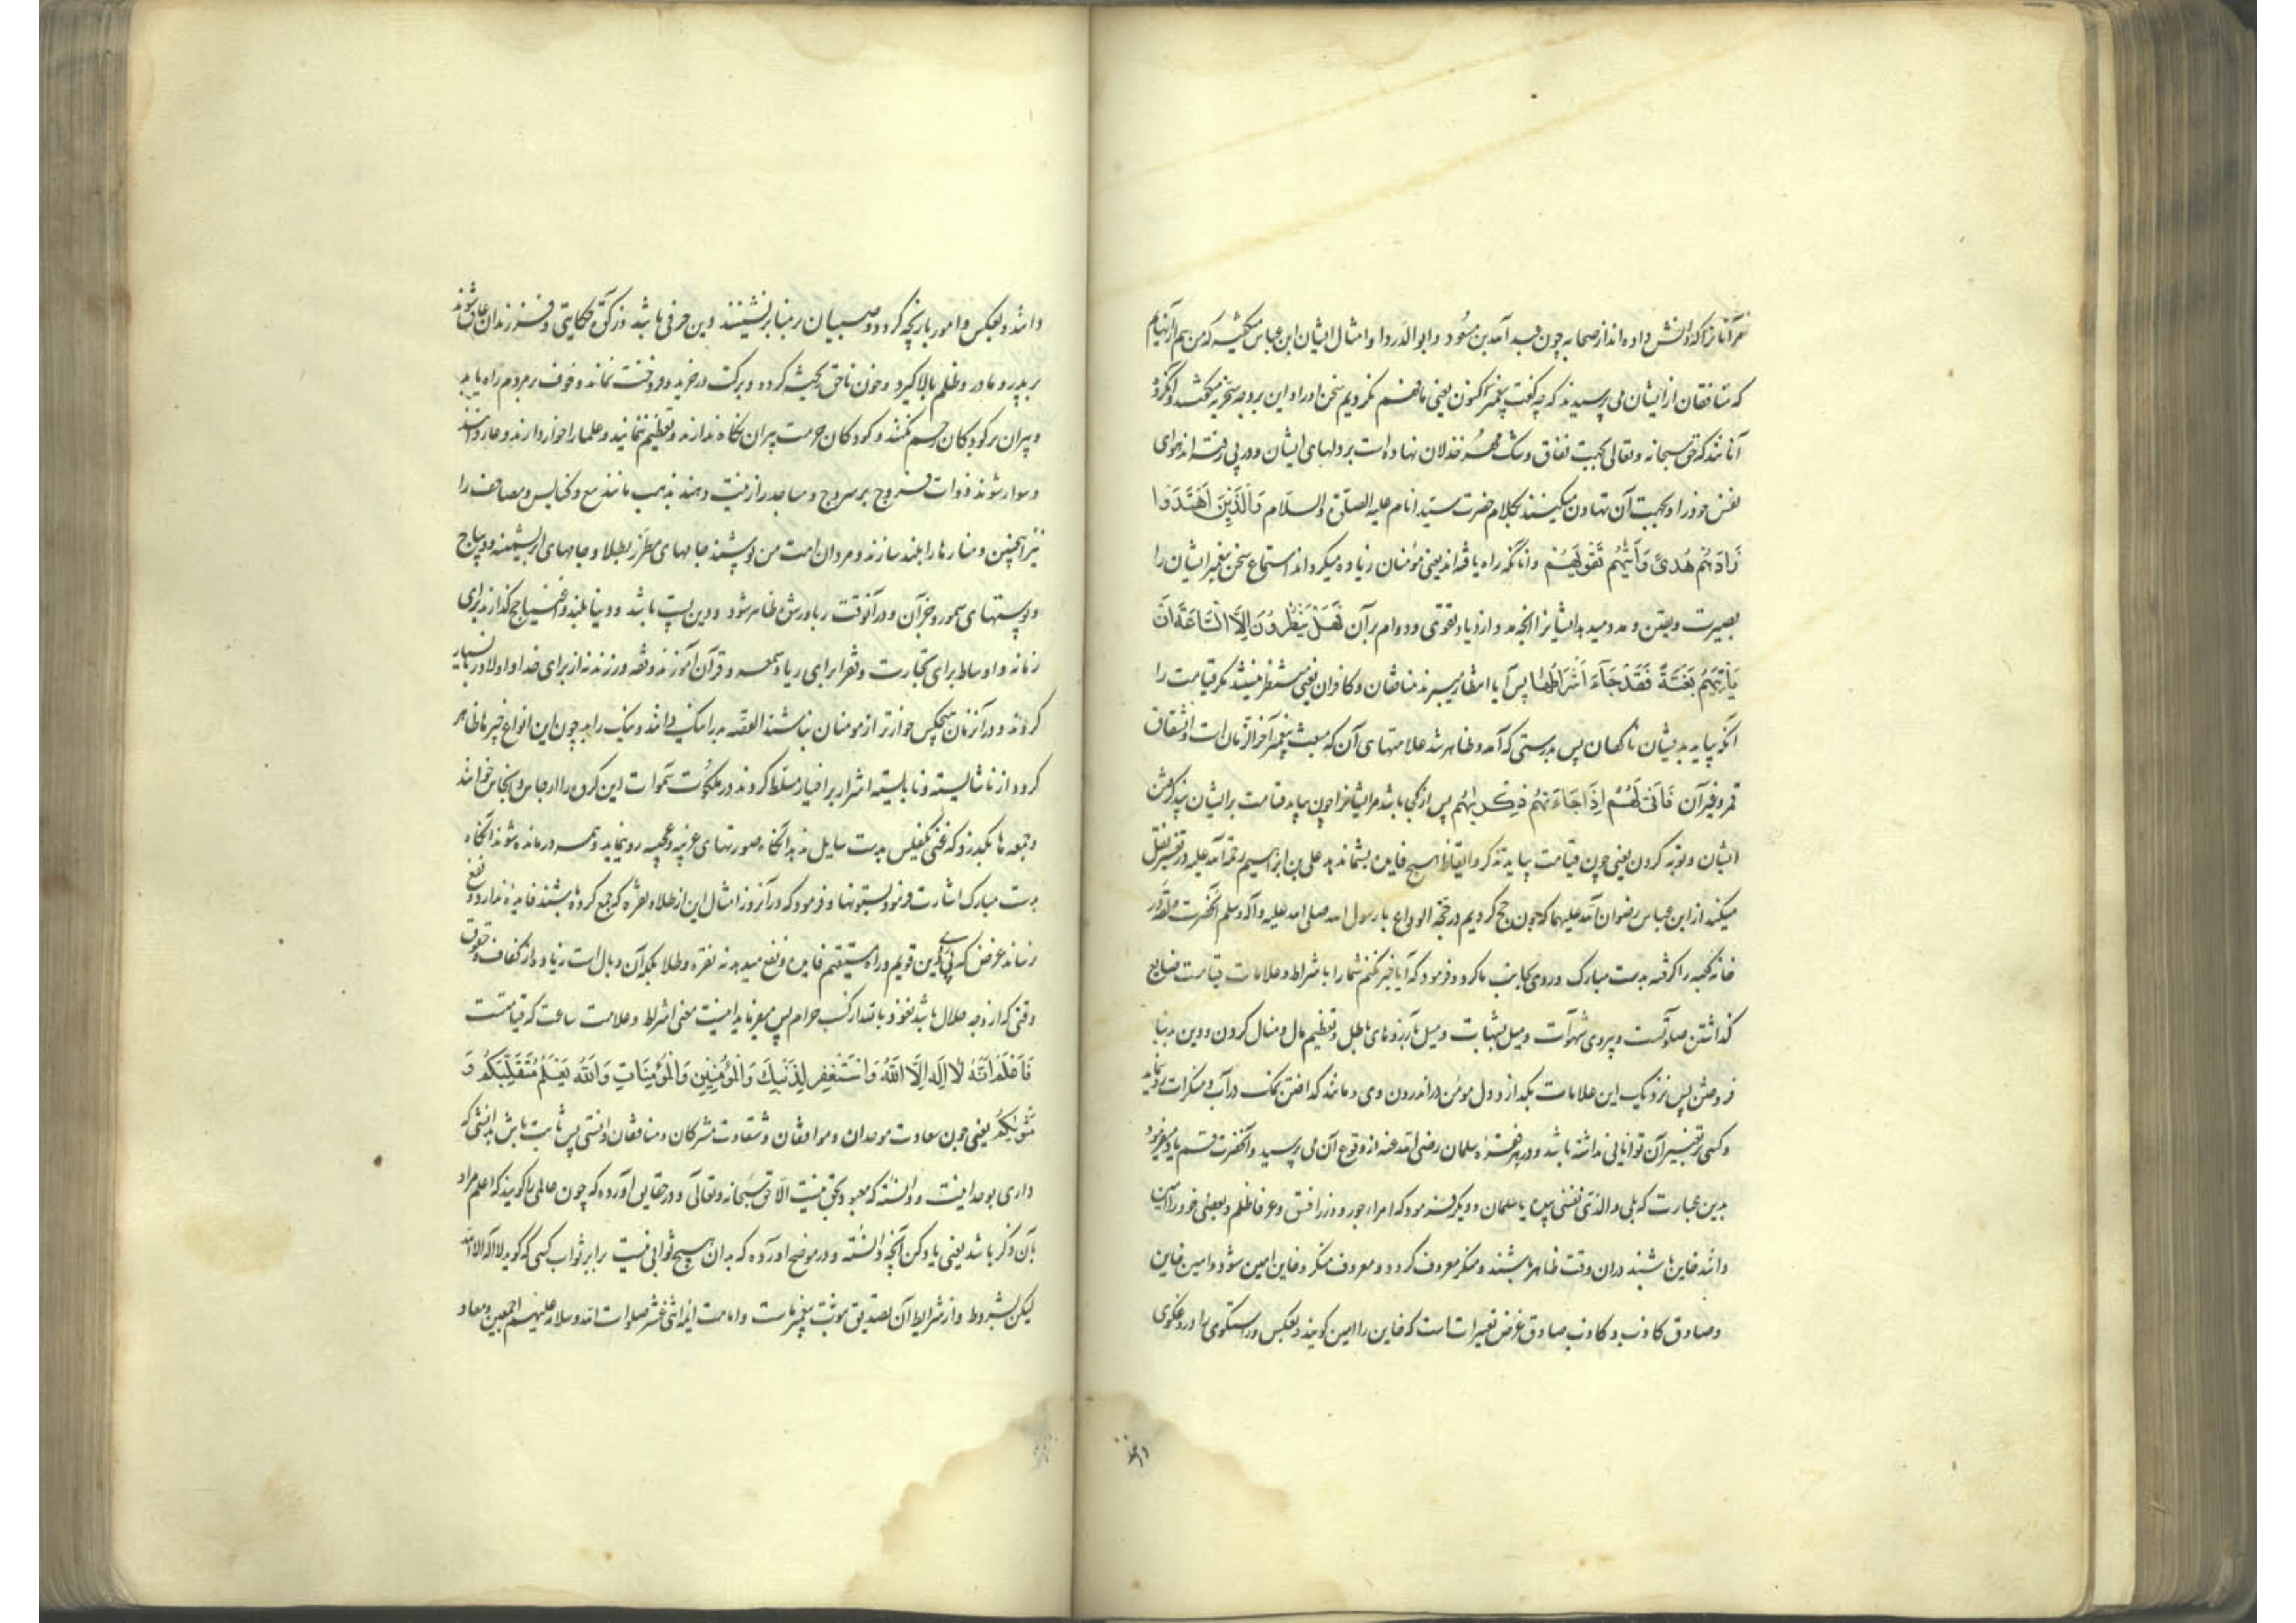 مر آنانرا که دانش داده اند از صحابه چون عبد الله بن مسعود و ابو الدردا و امثال ایشان ابن عباس میگفته که من هم از آنهایم
که منافقان از ایشان می پرسیدند که چه گفت پیغمبر اکنون یعنی ما فهم نکردیم سخن او را و این بر وجه سخریه میگفتند
آنانند که حق سبحانه و تعالی بجهت نفاق و شک مهر خذلان نهاده است بر دلهای ایشان و در پی رفته اند هوای
نفس خود را و بجهت آن تهاون میکنند بکلام حضرت سید انام علیه الصلوة والسلام وَالَّذِینَ اهْتَدَوْا
زَادَهُمْ هُدًی وَآتٰیهُمْ تَقْوٰیهُمْ و آنانکه راه یافته اند یعنی مؤمنان زیاده میگرداند استماع سخن پیغمبر ایشان را
بصیرت و یقین و مدد میدهد ایشانرا آنچه مد و ازدیاد تقوی و دوام بر آن فَهَلْ یَنْظُرُونَ اِلَّا السَّاعَةَ اَنْ
یَأْتِیَهُمْ بَغْتَةً فَقَدْ جَآءَ اَشْرَاطُهَا پس آیا انتظار میبرند منافقان و کافران یعنی منتظر نیستند مگر قیامت را
آنکه بیاید بدیشان ناگهان پس بدرستی که آمد و ظاهر شد علامتهای آن که مبعث پیغمبر آخر الزمان است و انشقاق
قمر و غیر آن فَاَنّٰی لَهُمْ اِذَا جَاءَتْهُمْ ذِکْرٰیهُمْ پس از کجا باشد مر ایشانرا چون بیاید قیامت بر ایشان پند گرفتن
ایشان و توبه کردن یعنی چون قیامت بیاید تذکر و ایقاظ هیچ فایده بشما ندهد علی بن ابراهیم رحمة الله علیه در تفسیر نقل
میکند از ابن عباس رضوان الله علیهما که چون حج کردیم در حجة الوداع با رسول الله صلی الله علیه و آله وسلم آنحضرت حلقه در
خانه کعبه را گرفته بدست مبارک و روی بجانب ما کرد و فرمود که آیا خبر نکنم شما را با شراط و علامات قیامت ضایع
گذاشتن صلوتست و پیروی شهوات و میل بشهات و میل بآرزوهای باطل و تعظیم مال و منال کردن و دین بدنیا
فروختن پس نزدیک این علامات بگدازد دل مومن در اندرون وی و مانند گداختن نمک در آب و منکرات رو نماید
و کسی بر تغییر آن توانایی نداشته باشد و در هر فقره سلمان رضی الله عنه از وقوع آن می پرسید و آنحضرت قسم یاد میفرمود
بدین عبارت که بلی والذی نفسی بیده یا سلمان و دیگر فرمود که امراء جور و وزراء فسق و عرفا ظلم و بعضی خود را امین
دانند خاین باشند در ان وقت ظاهر باشند و منکر معروف گردد و معروف منکر و خاین امین شود و امین خاین
و صادق کاذب و کاذب صادق غرض تغییرات است که خاین را امین گویند و بعکس و راستگوی را دروغگوی
دانند و بعکس و امور بازیچه گردد و صبیان بر منابر نشینند و دین حرفی باشد و زکوة حکایتی و فرزندان عاق شوند
بر پدر و مادر و ظلم بالا گیرد و خون ناحق ریخته گردد و برکت در خرید و فروخت نماند و خوف بر مردم راه یابد
و پیران بر کودکان رحم نکنند و کودکان حرمت پیران نگاه ندارند و تعظیم ننمایند و علما را خوار دارند و عار دانند
و سوار شوند ذوات فروج بر سروج و مساجد را زینت دهند بذهب مانند بیع و کنایس و مصاحف را
نیز همچنین و منارها را بلند سازند و مردان امت من پوشند جامهای مطرز بطلا و جامهای ابریشمینه و دیباج
و پوستهای سمور و خز آن و در آنوقت ربا و رشی ظاهر شود و دین پست باشد و دنیا بلند و اغنیا حج گذارند برای
زمانه و اوساط برای تجارت و فقرا برای ریا و سمعه و قرآن آموزند و فقه ورزند نه از برای خدا و اولاد زنا بسیار
گردند و در آنزمان هیچکس خوارتر از مومنان نباشند القصه بد را نیک دانند و نیک را بد چون این انواع چیزها ظاهر
گردد از ناشایسته و نابایسته اشرار بر اخیار مسلط گردند در ملکوت سموات این گروه را ارجاس و انجاس خوانند
و جمعه ها بگذرد که غنی بمفلس بدست سایل ندهد آنگاه صورتهای غریبه و عجیبه رو نماید و همه درمانده شوند آنگاه
بدست مبارک اشارت فرمود بستونها و فرمود که در آنروز امثال این از طلا و نقره که جمع کرده باشند فایده ندارد و نفع
نرساند غرض که پی دین قویم و راه مستقیم فایده و نفع میدهد نه نقره و طلا بلکه آن وبال است زیاده از کفاف و حقوق
وقتی که از وجه حلال باشد نعوذ بالله از کسب حرام پس میفرماید اینست معنی اشراط و علامت ساعت که قیامتست
فَاعْلَمْ اَنَّهُ لَا اِلٰهَ اِلَّا اللّٰهُ وَاسْتَغْفِرْ لِذَنْبِكَ وَلِلْمُؤْمِنِینَ وَالْمُؤْمِنَاتِ وَاللّٰهُ یَعْلَمُ مُتَقَلَّبَكُمْ وَ
مَثْوٰیكُمْ یعنی چون سعادت موحدان و موافقان و شقاوت مشرکان و منافقان دانستی پس ثابت باش بدانشی که
داری بوحدانیت و دانسته که معبود بحق نیست الا حق سبحانه و تعالی و در حقایق آورده که چون عالمی را گویند که اعلم مراد
بآن ذکر باشد یعنی یاد کن آنچه دانسته و در موضح آورده که بدان هیچ ثوابی نیست برابر ثواب کسی که گوید لا اله الا الله
لیکن بشروط و از شرایط آن تصدیق نبوت پیغمبر ماست و امامت ائمه اثنی عشر صلوات الله و سلامه علیهم اجمعین و معاد